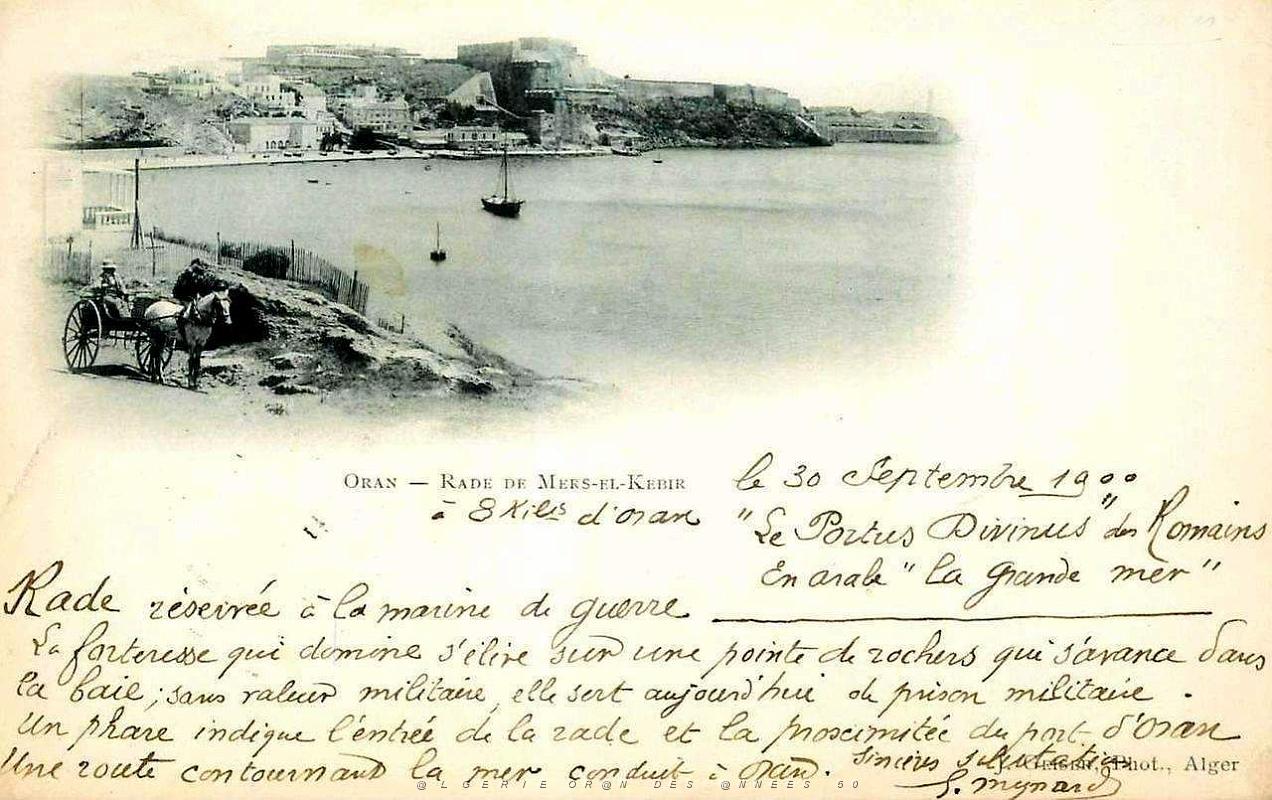 ORAN — RADE DE MERS-EL-KEBIR
à 8 Kil^s d'oran
le 30 Septembre 1900
"Le Portus Divinus" des Romains
En arabe "la grande mer"
Rade réservée à la marine de guerre
La forteresse qui domine s'élève sur une pointe de rochers qui s'avance dans
la baie; sans valeur militaire, elle sert aujourd'hui de prison militaire.
Un phare indique l'entrée de la rade et la proximité du port d'Oran
Une route contournant la mer conduit à Oran.
Sincères salutations
J. GEISER, Phot., Alger
@LGERIE OR@N DES @NNEES 50